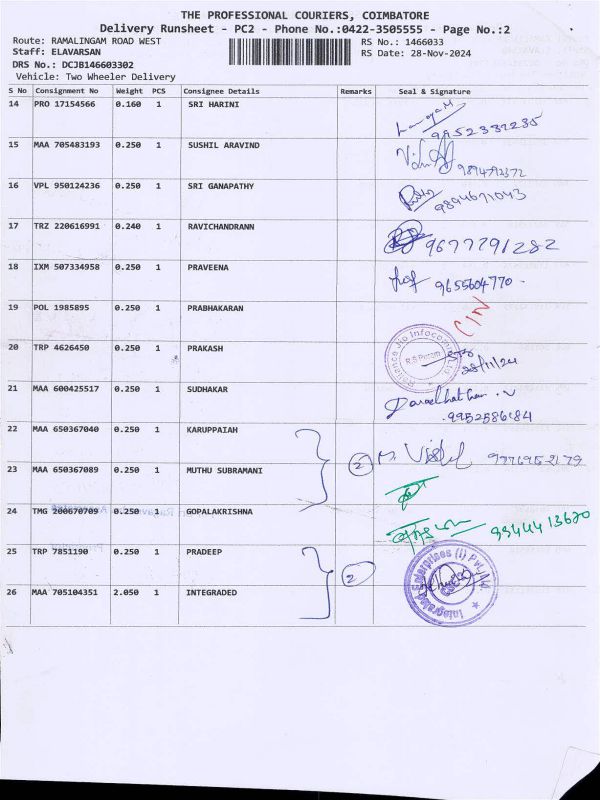 THE PROFESSIONAL COURIERS, COIMBATORE
Delivery Runsheet - PC2 - Phone No.:0422-3505555 - Page No.:2
Route: RAMALINGAM ROAD WEST RS No.: 1466033
Staff: ELAVARSAN RS Date: 28-Nov-2024
DRS No.: DCJB146603302
Vehicle: Two Wheeler Delivery
S No Consignment No Weight PCS Consignee Details Remarks Seal & Signature
14 PRO 17154566 0.160 1 SRI HARINI
9952332235
15 MAA 705483193 0.250 1 SUSHIL ARAVIND
16 VPL 950124236 0.250 1 SRI GANAPATHY
9894671043
17 TRZ 220616991 0.240 1 RAVICHANDRANN
9677791282
18 IXM 507334958 0.250 1 PRAVEENA
9655604770
19 POL 1985895 0.250 1 PRABHAKARAN
CIN
20 TRP 4626450 0.250 1 PRAKASH
Reliance Jio Infocomm
R.S Puram
28/11/24
21 MAA 600425517 0.250 1 SUDHAKAR
9952586684
22 MAA 650367040 0.250 1 KARUPPAIAH
2
23 MAA 650367089 0.250 1 MUTHU SUBRAMANI
24 TMG 200670709 0.250 1 GOPALAKRISHNA
9944413620
25 TRP 7851190 0.250 1 PRADEEP
2
Integrated Enterprises (I) Pvt Ltd
26 MAA 705104351 2.050 1 INTEGRADED